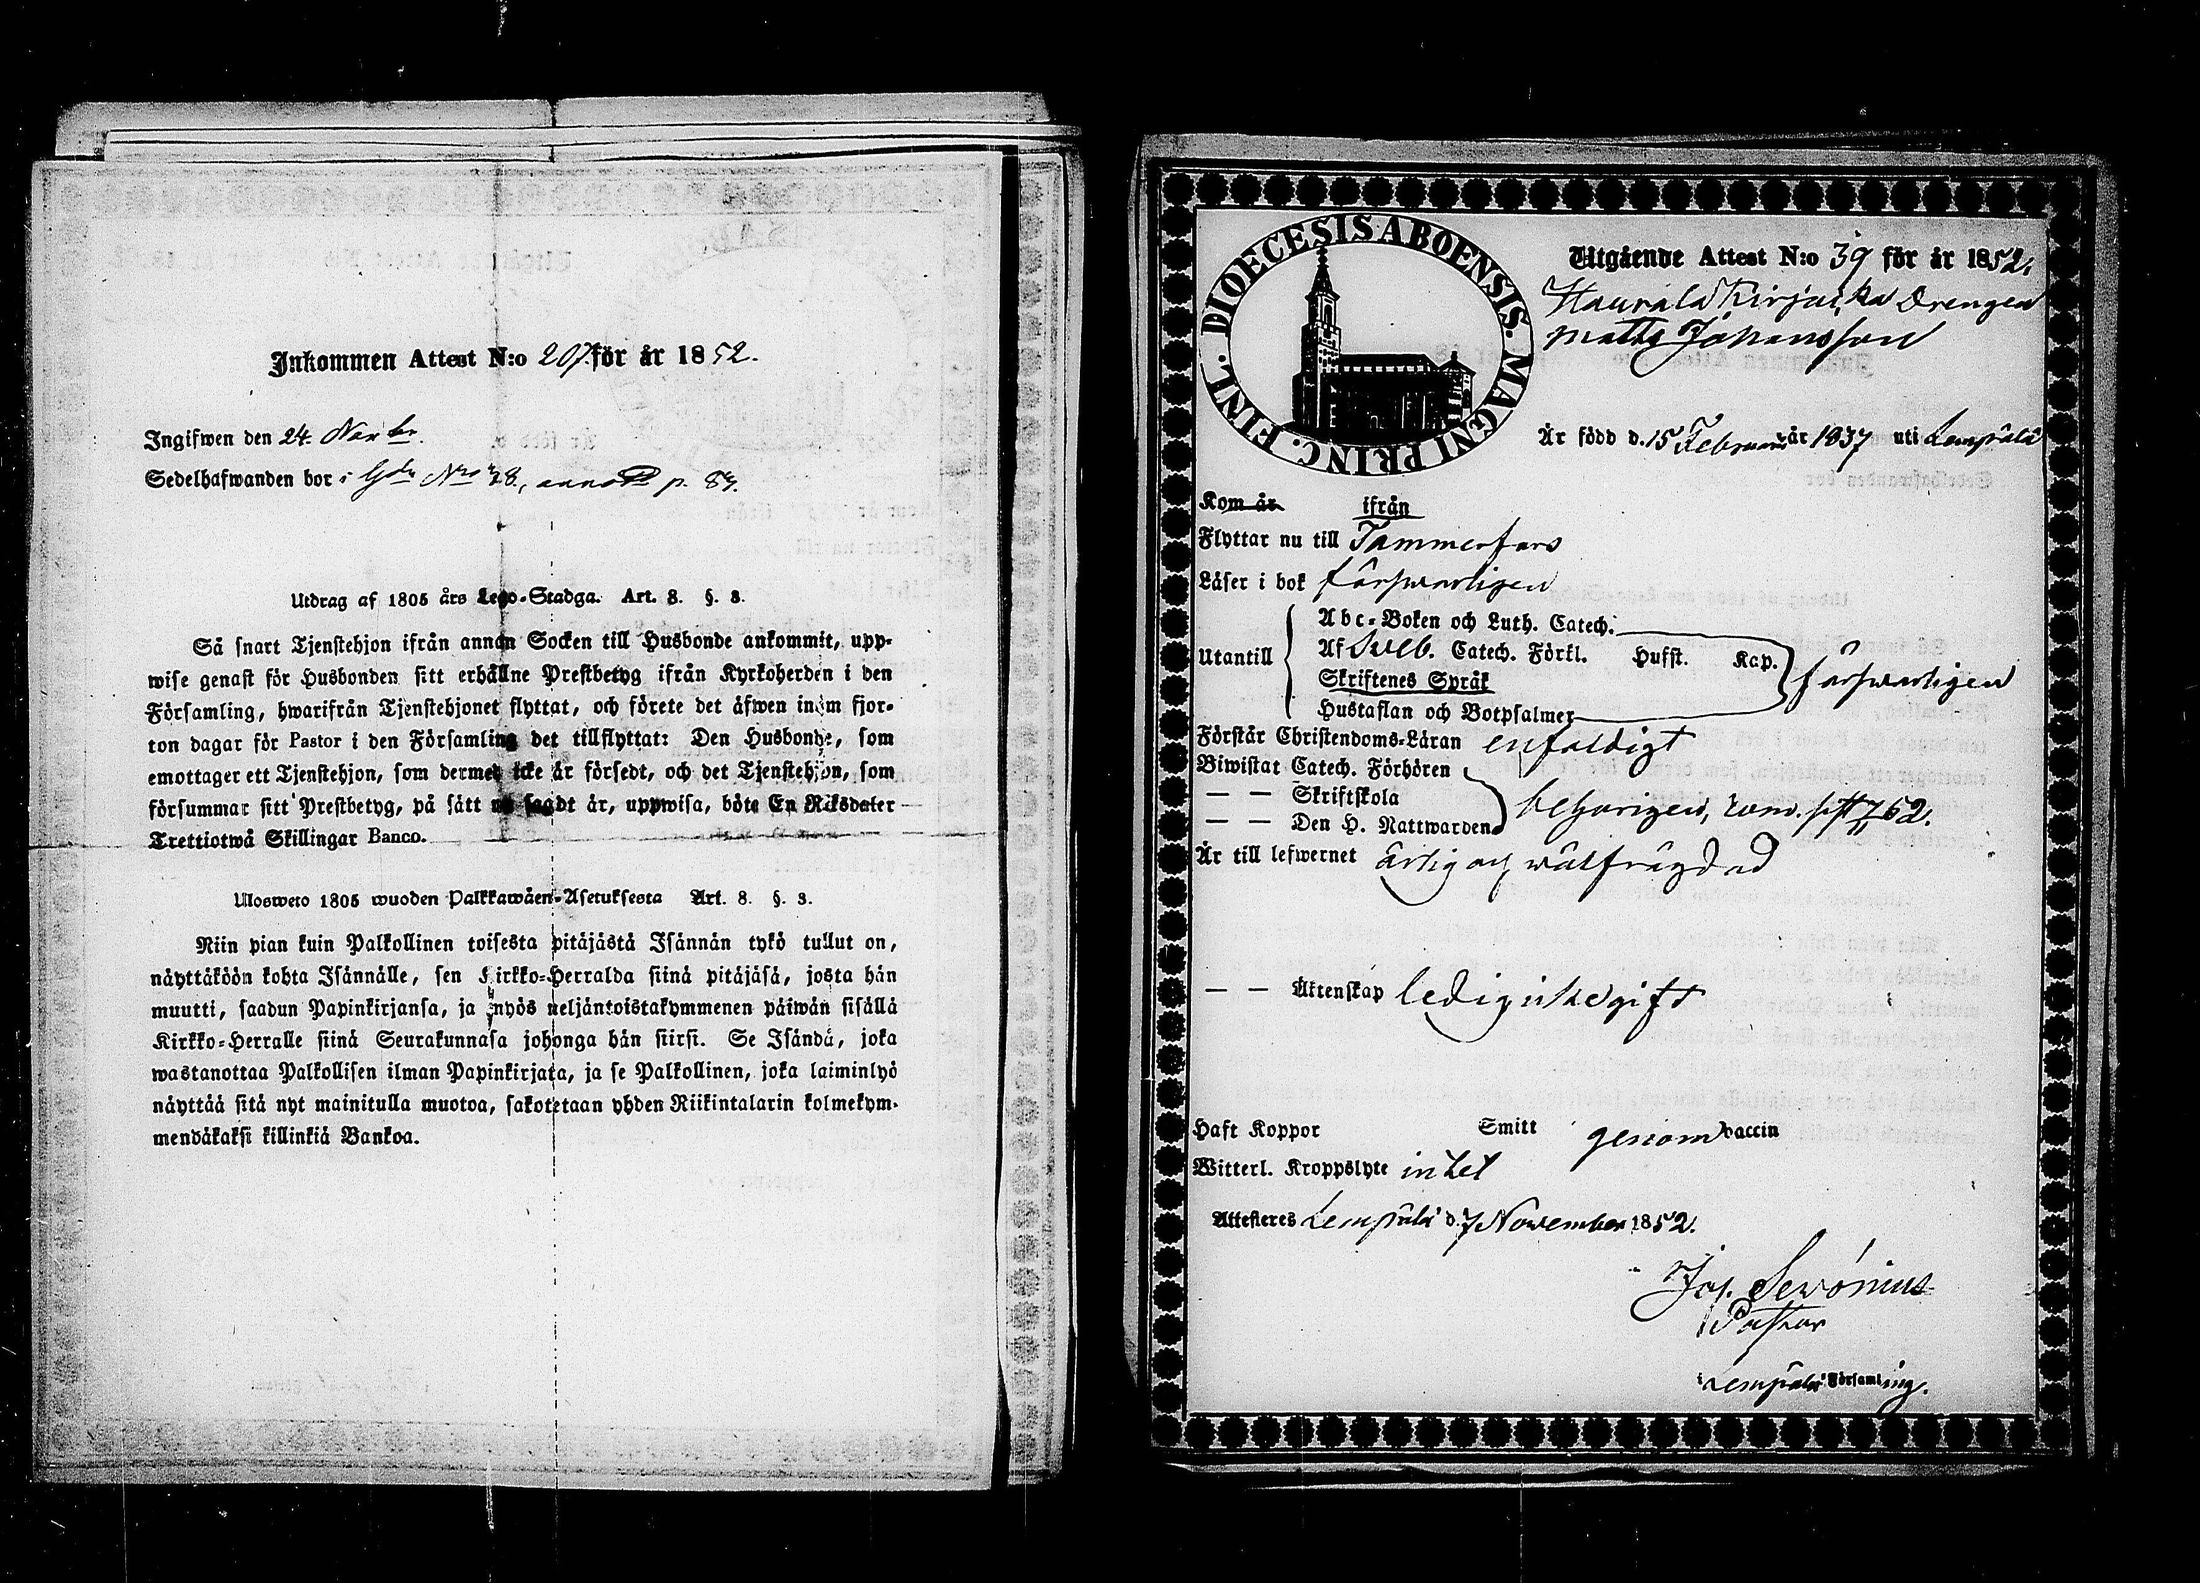 Inkommen Attest N:o 207. för år 1852.
Ingifwen den 24. Novbr.
Sedelhafwanden bor i Gdn Nro 38., p. 84.
Utdrag af 1805 års Lego-Stadga. Art. 8. §. 3.
Så snart Tjenstehjon ifrån annan Socken till Husbonde ankommit, upp-
wise genast för Husbonden sitt erhållne Prestbetyg ifrån Kyrkoherden i den
Församling, hwarifrån Tjenstehjonet flyttat, och förete det äfwen inom fjor-
ton dagar för Pastor i den Församling det tillflyttat: Den Husbonde, som
emottager ett Tjenstehjon, som dermed icke är försedt, och det Tjenstehjon, som
försummar sitt Prestbetyg, på sätt nu sagdt är, uppwisa, böte En Riksdaler
Trettiotwå Skillingar Banco.
Ulosweto 1805 wuoden Palkkawäen-Asetuksesta Art. 8. §. 3.
Niin pian kuin Palkollinen toisesta pitäjästä Isännän tykö tullut on,
näyttäköön kohta Isännälle, sen Kirkko-Herralda siinä pitäjäsä, josta hän
muutti, saadun Papinkirjansa, ja myös neljäntoistakymmenen päiwän sisällä
Kirkko-Herralle siinä Seurakunnasa johonga hän siirsi. Se Isändä, joka
wastanottaa Palkollisen ilman Papinkirjata, ja se Palkollinen, joka laiminlyö
näyttää sitä nyt mainitulla muotoa, sakotetaan yhden Riikintalarin kolmekym-
mendäkaksi killinkiä Bankoa.
DIOECESIS ABOENSIS. MAGNI PRINC. FINL.
Utgående Attest N:o 39 för år 1852.
Haurala Drengen
Matts Johansson
Är född d. 15 Februari år 1837 uti Lempälä
Kom år ifrån
Flyttar nu till Tammerfors
Läser i bok försvarligen
Abc-Boken och Luth. Catech.
Utantill Af Sveb. Catech. Förkl. Hufst. Kap. försvarligen
Skriftenes Språk
Hustaflan och Botpsalmer
Förstår Christendoms-Läran enfaldigt
Biwistat Catech. Förhören
— — Skriftskola behörigen,
— — Den H. Nattwarden
Är till lefwernet ärlig och wälfrägdad
— — Äktenskap ledig icke gift
Haft Koppor Smitt genom vaccin
Witterl. Kroppslyte intet
Attesteres Lempälä d. 7 November 1852.
Jos. Serónius
Pastor
i Lempälä Församling.